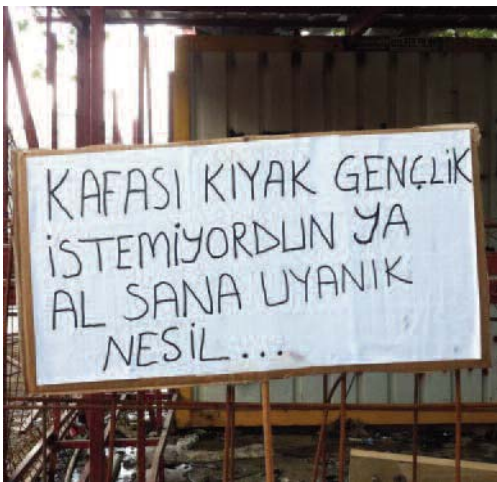 KAFASI KIYAK GENÇLİK
İSTEMİYORDUN YA
AL SANA UYANIK
NESİL...